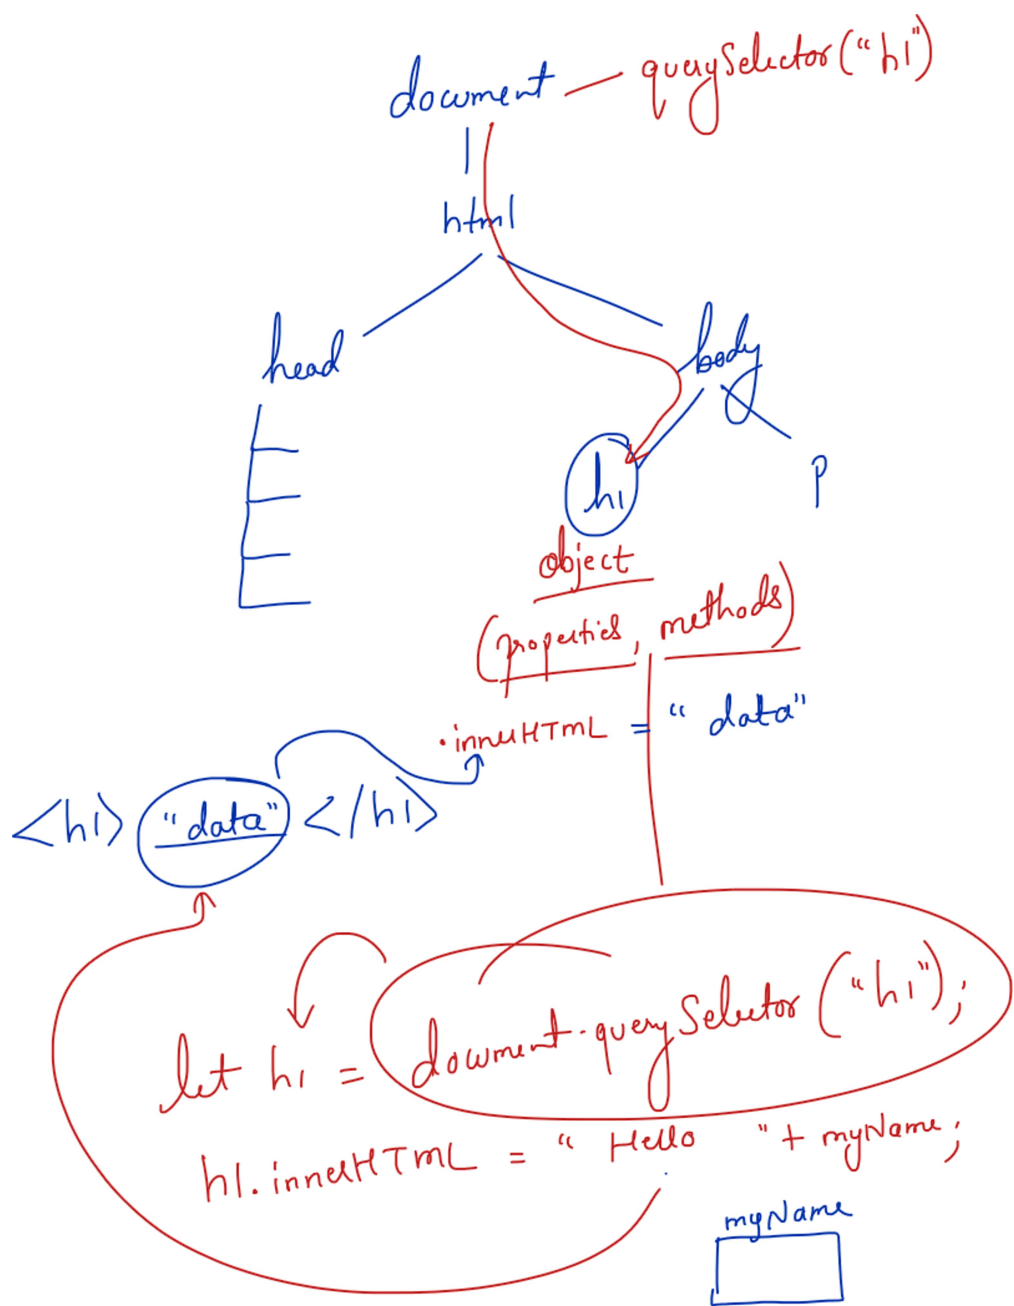 document — querySelector("h1")
html
head
body
h1
p
object
(properties, methods)
.innerHTML = "data"
<h1> "data" </h1>
let h1 = document.querySelector("h1");
h1.innerHTML = "Hello " + myName;
myName